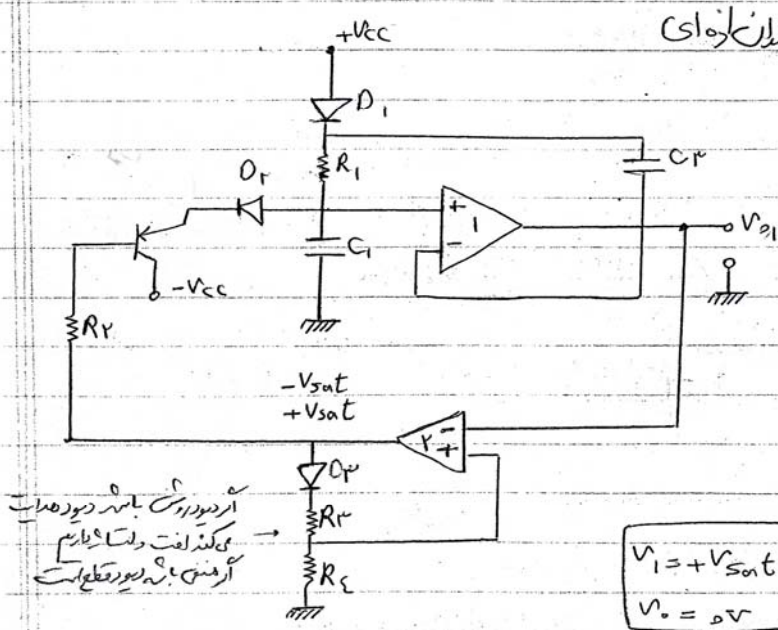 +Vcc
D۱
R۱
C۲
D۲
+
۱
-
Vo۱
C۱
-Vcc
R۲
-Vsat
+Vsat
-
۲
+
D۳
R۳
R٤
اگر دیود روشن باشد دیود هدایت
می‌کند افت ولتاژ داریم →
اگر منفی باشد دیود قطع است
V۱ = +Vsat
V۰ = ۰V